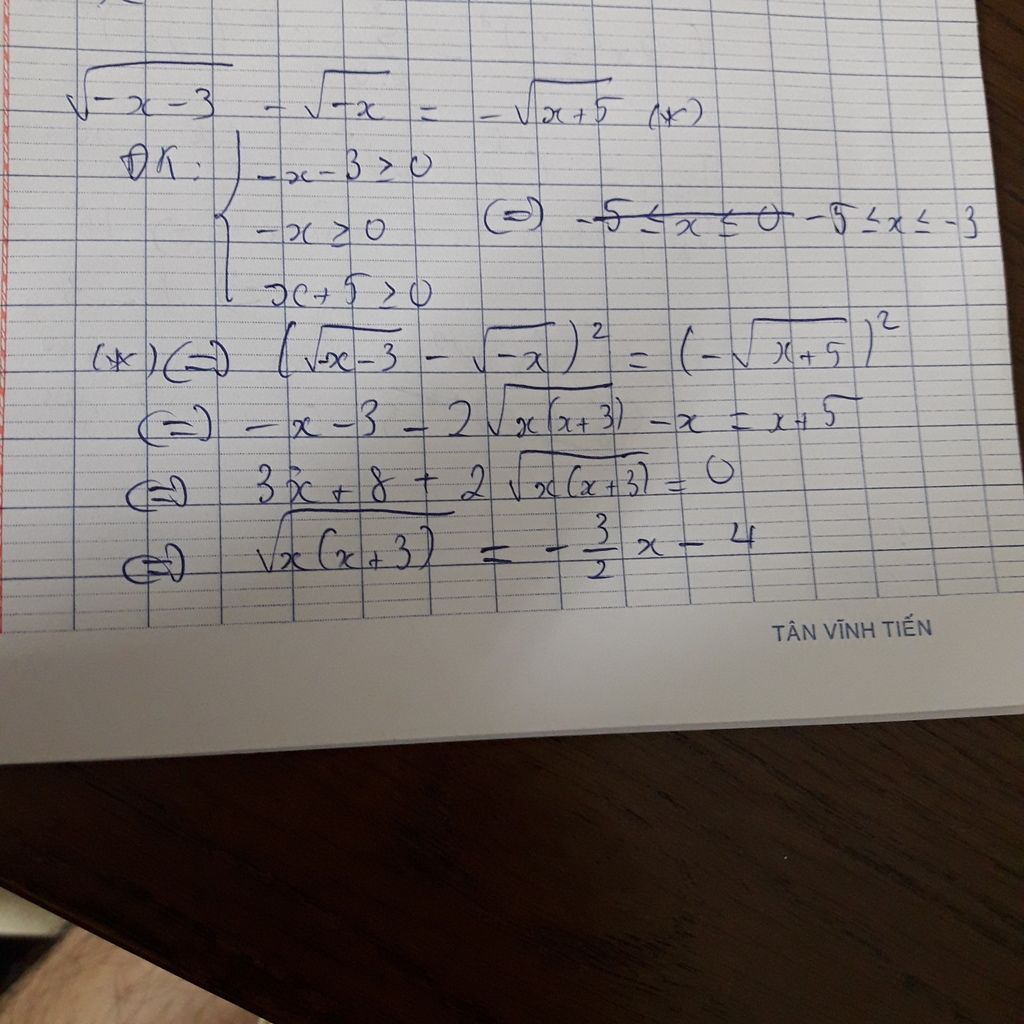 √(-x-3) - √(-x) = -√(x+5) (*)
ĐK: { -x-3 ≥ 0
-x ≥ 0 (=) -5 ≤ x ≤ 0 -5 ≤ x ≤ -3
x+5 ≥ 0
(*) (=) (√(-x-3) - √(-x))² = (-√(x+5))²
(=) -x-3-2√(x(x+3)) -x = x+5
(=) 3x+8+2√(x(x+3)) = 0
(=) √(x(x+3)) = -3/2 x - 4
TÂN VĨNH TIẾN